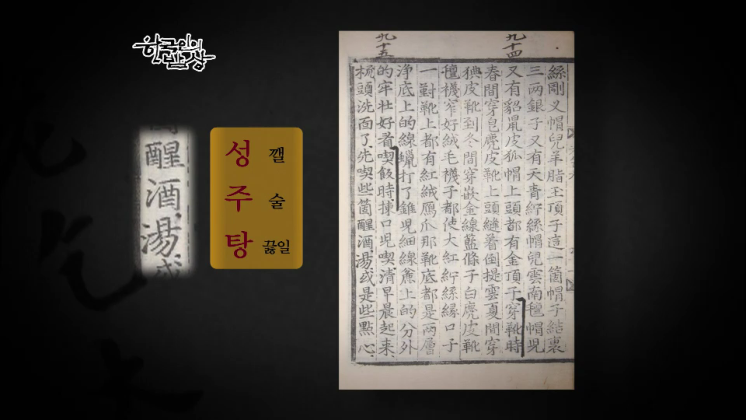 한국인의 밥상
醒酒湯或
성 깰
주 술
탕 끓일
九十四
九十五
絲剛叉帽兒羊脂玉頂子這一箇帽子結裹
三兩銀子又有天青紵絲帽兒雲南氊帽兒
又有貂鼠皮狐帽上頭都有金頂子穿靴時
春間穿皂麂皮靴上頭縫着倒提雲夏間穿
皮靴到冬間穿嵌金線藍條子白麂皮靴
氊襪穿好絨毛襪子都使大紅紵絲縁口子
一對靴上都有紅絨鴈爪那靴底都是兩層
淨底上的線蠟打了錐兒細線麄上的分外
的牢壯好看喫飯時揀口兒喫清早晨起来
梳頭洗面了先喫些箇醒酒湯或是些點心